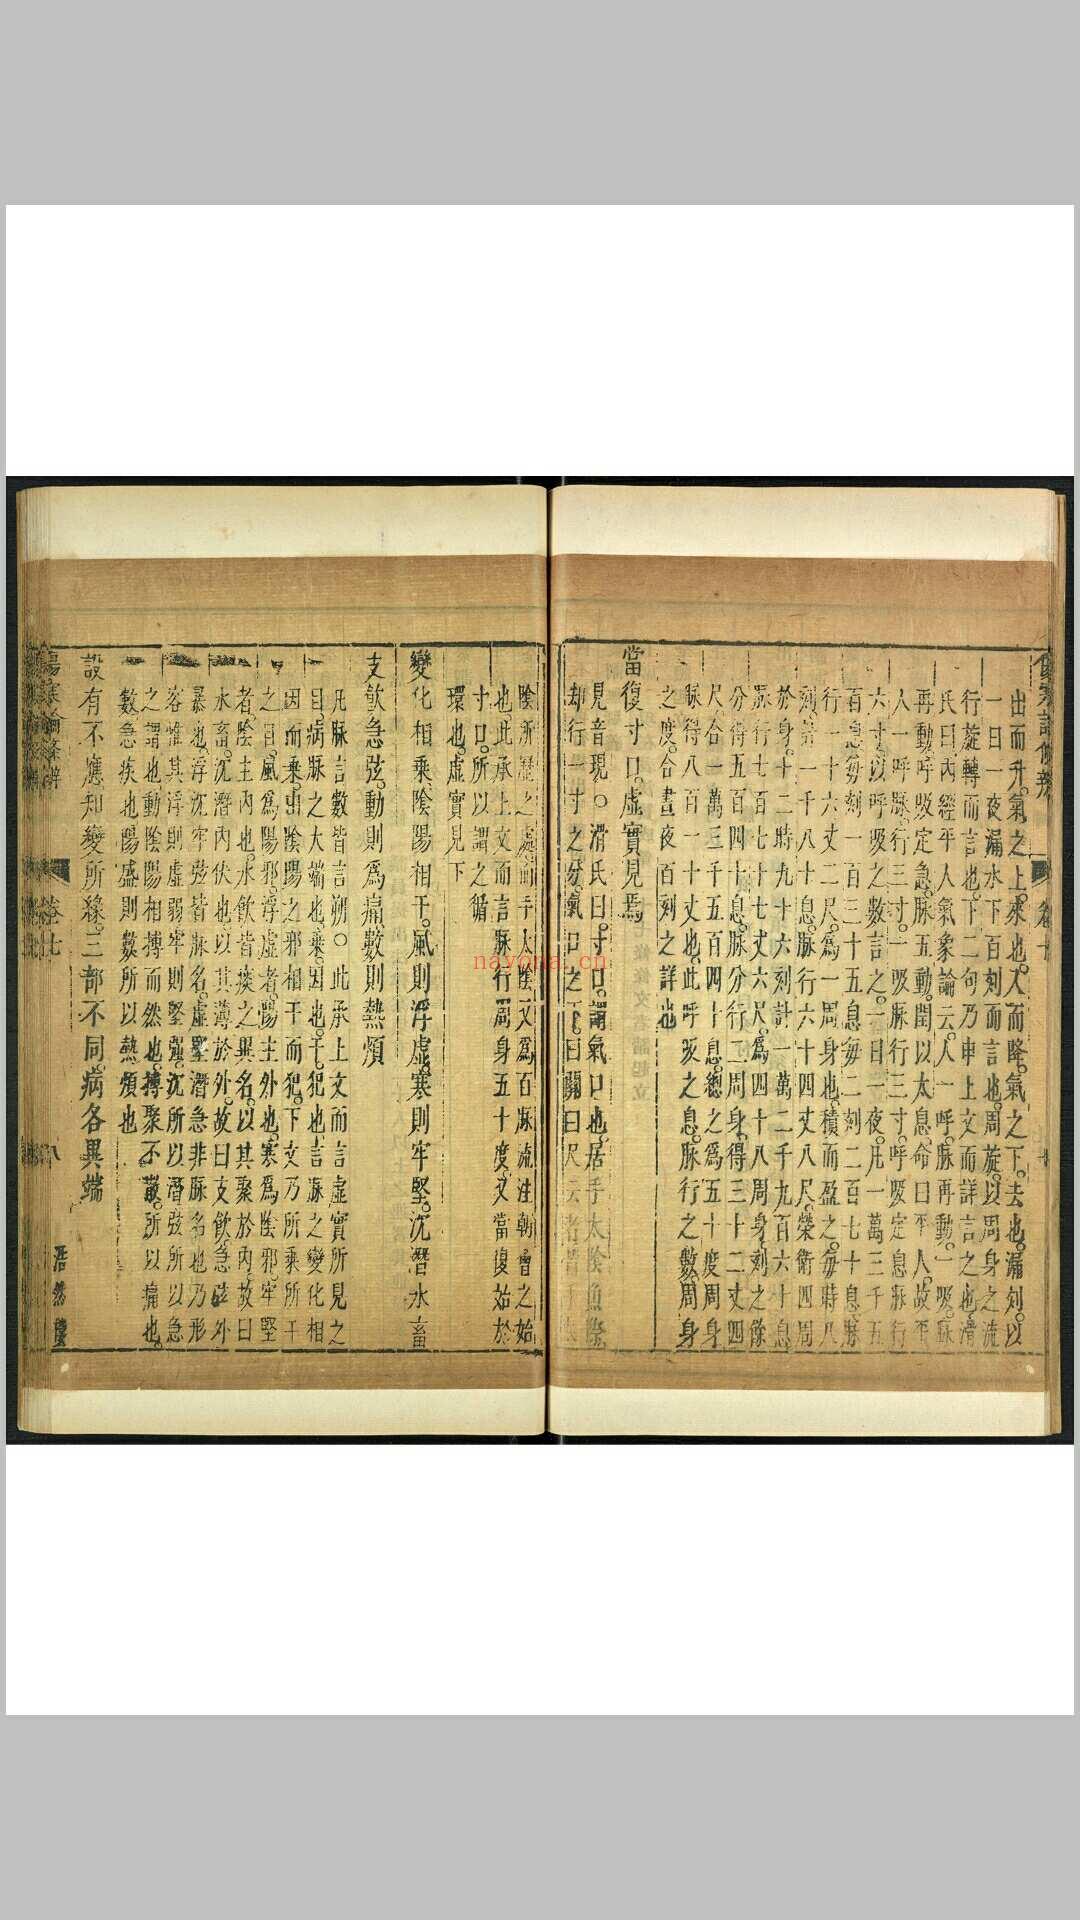 出而升氣之上來也入而降氣之下去也漏刻以
一日一夜漏水下百刻而言也周旋以周身之流
行旋轉而言也下二句乃申上文而詳言之也滑
氏曰內經平人氣象論云人一呼脉再動一吸脉
再動呼吸定息脉五動閏以太息命曰平人故平
人一呼脉行三寸一吸脉行三寸呼吸定息脉行
六寸以呼吸之數言之一日一夜凡一萬三千五
百息每刻一百三十五息每二刻二百七十息脉
行一十六丈二尺爲一周身也積而盈之每時八
刻計一千八十息脉行六十四丈八尺榮衛四周
於身十二時九十六刻計一萬二千九百六十息
脉行七百七十七丈六尺爲四十八周身刻之餘
分得五百四十息脉分行二周身得三十二丈四
尺合一萬三千五百四十息總之爲五十度周身
脉得八百一十丈也此呼吸之息脉行之數周身
之度合晝夜百刻之詳也
當復寸口虛實見焉
見音現○滑氏曰寸口謂氣口也居手太陰魚際
却行一寸之分氣口之下曰關曰尺云者皆手太
陰所歷之處而手太陰又爲百脉流注朝會之始
也此承上文而言脉行周身五十度又當復始於
寸口所以謂之循
環也虛實見下
變化相乘陰陽相干風則浮虛寒則牢堅沉潛水畜
支飲急弦動則爲痛數則熱煩
凡脉言數皆言朔○此承上文而言虛實所見之
目病脉之大端也乘因也干犯也言脉之變化相
因而乘出陰陽之邪相干而犯下文乃所乘所干
之目風爲陽邪浮虛者陽主外也寒爲陰邪牢堅
者陰主內也水飲皆痰之異名以其聚於內故曰
水畜沉潛內伏也以其薄於外故曰支飲急弦外
暴也浮沉牢弦皆脉名虛堅潛急非脉名也乃形
容惟其浮則虛弱牢則堅強沉所以潛弦所以急
之謂也動陰陽相搏而然也搏聚不散所以痛也
數急疾也陽盛則數所以熱煩也
設有不應知變所緣三部不同病各異端
傷寒論條辨
卷七
八
浩然樓